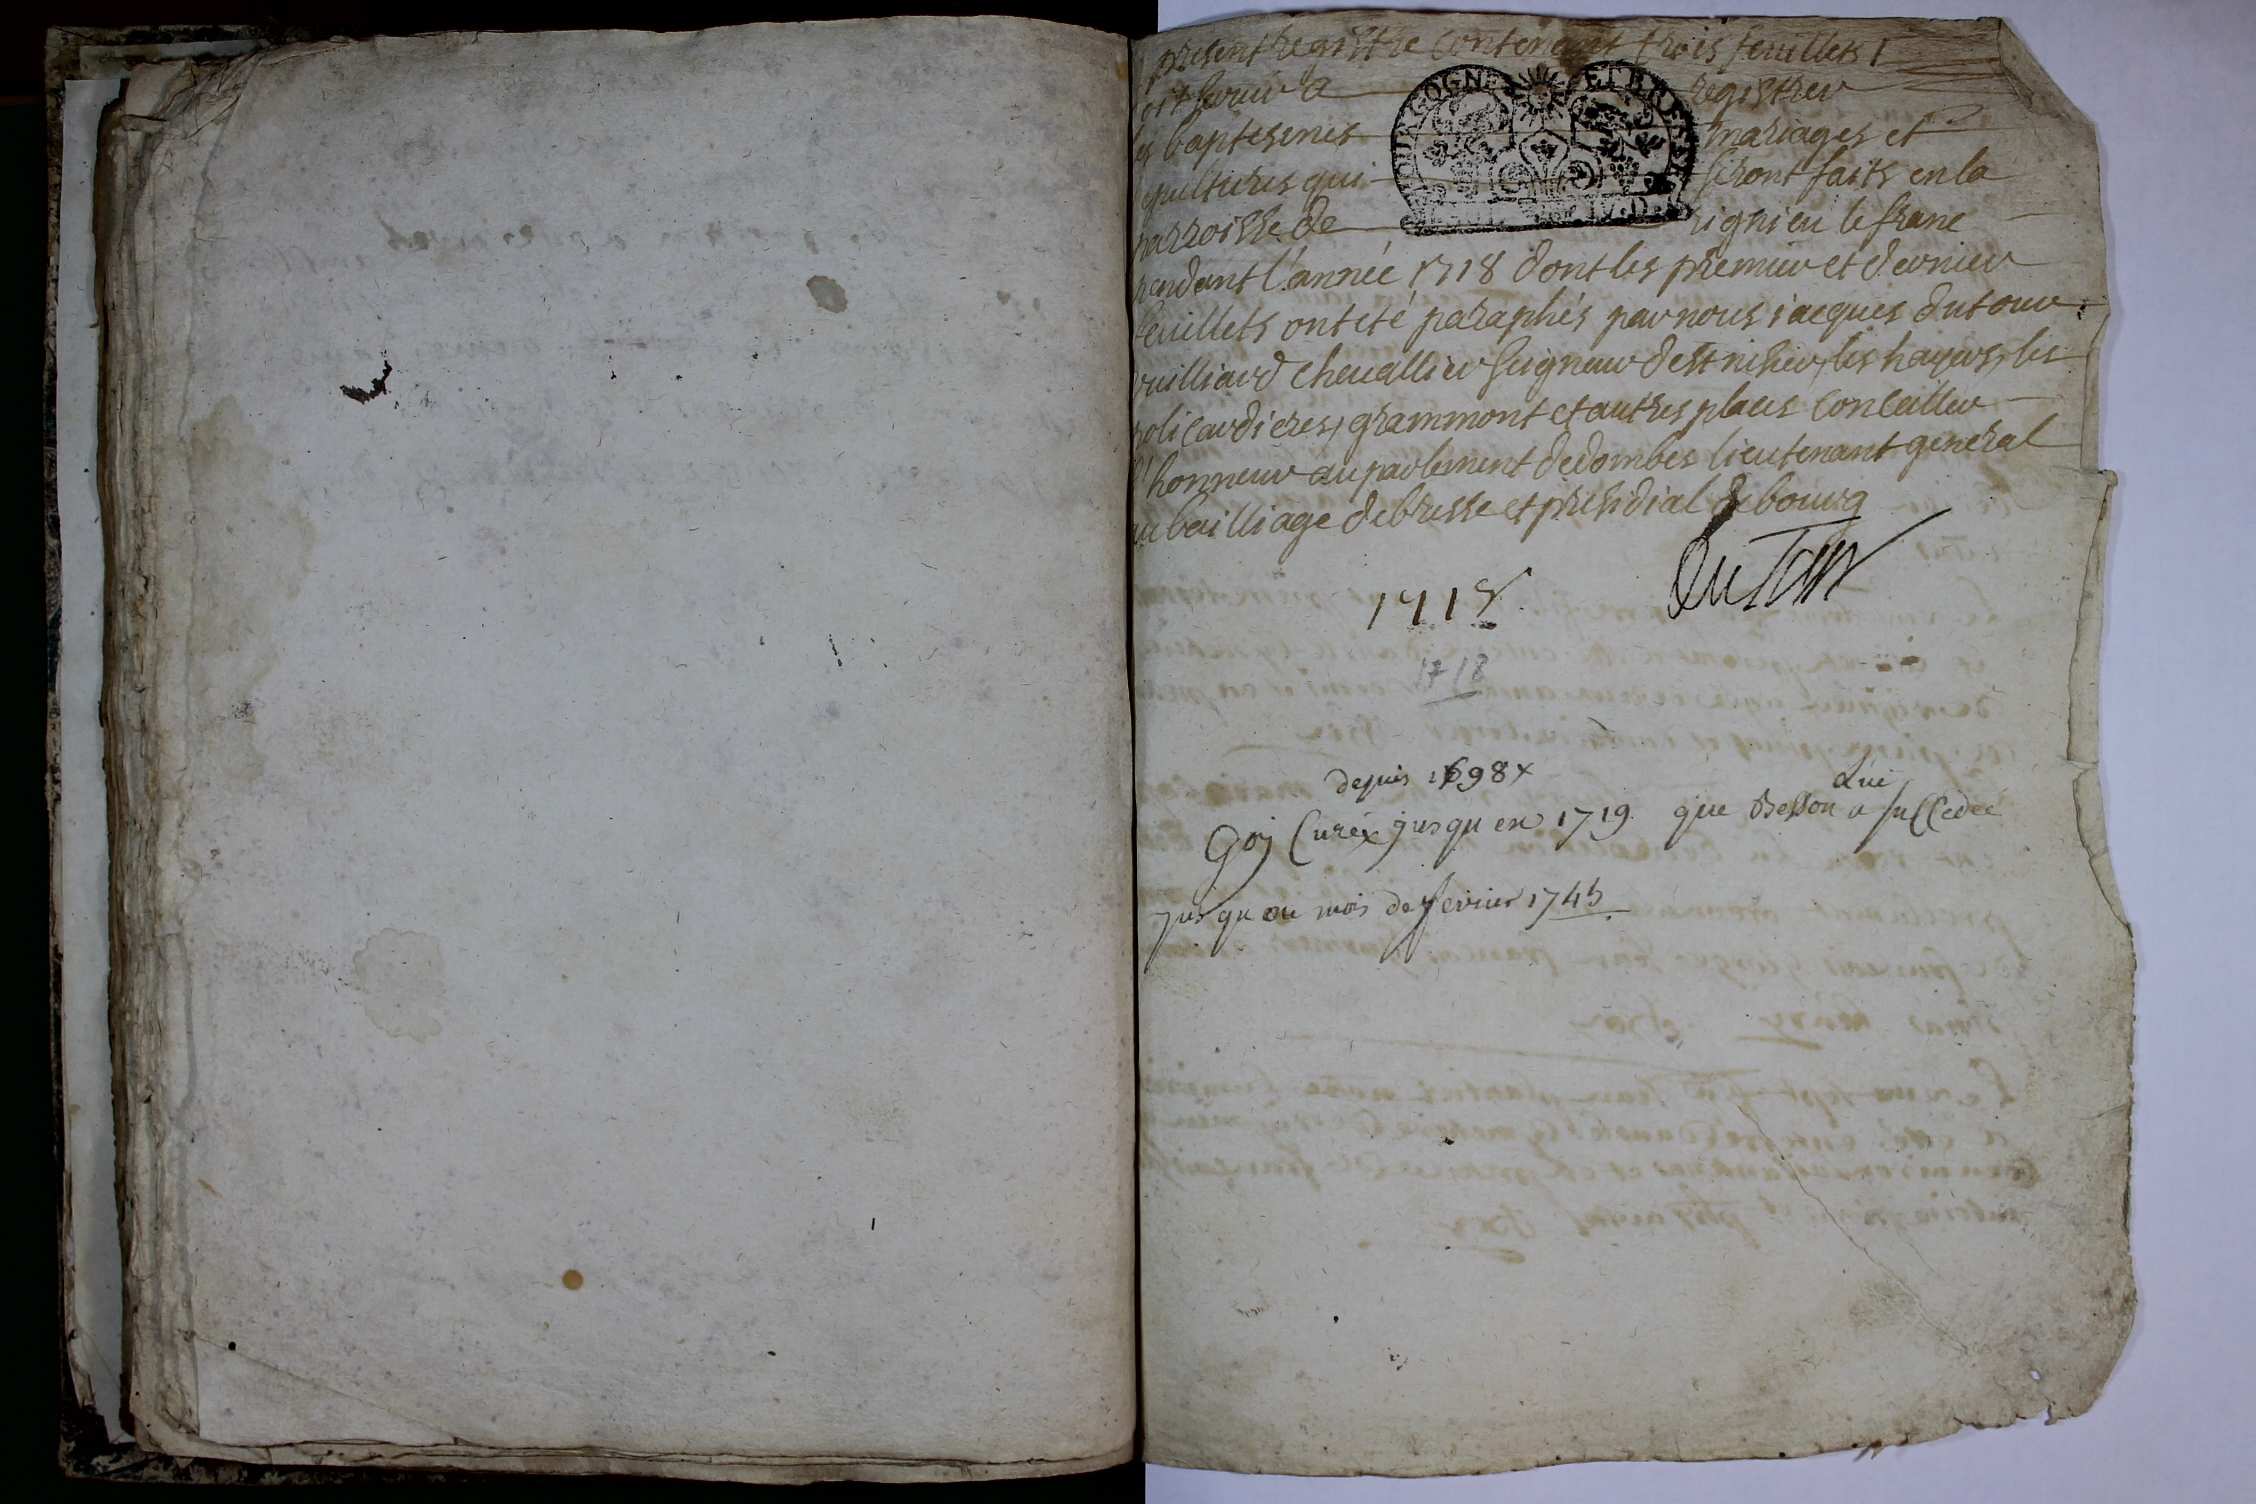 present registre contenant trois feuillets
servir a registrer
les baptesmes mariages et
sepultures qui seront faits en la
parroisse de rignieu le franc
pendant l'année 1718 dont les premier et dernier
feuillets ont eté paraphés par nous iacques dutour
vuilliard chevallier seigneur de st nisier, les hayers, les
policardieres, grammont et autres places Conseiller
d'honneur au parlement de dombes lieutenant general
au bailliage de bresse et presidial de bourg
BOURGOGNE ET BRESSE
DuTour
1718
1718
depuis 1698 x
Goy Curéx jusqu en 1719. que Besson a succedé
Lui
jusqu au mois de fevrier 1745